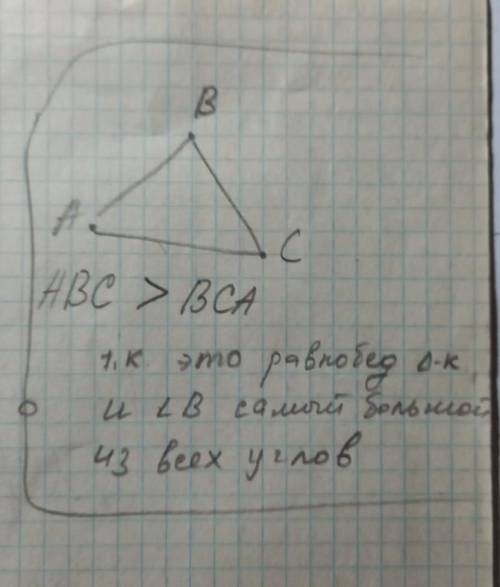 B
A
C
ABC > BCA
т.к это равнобед Δ-к,
и ∠B самый большой
из всех углов